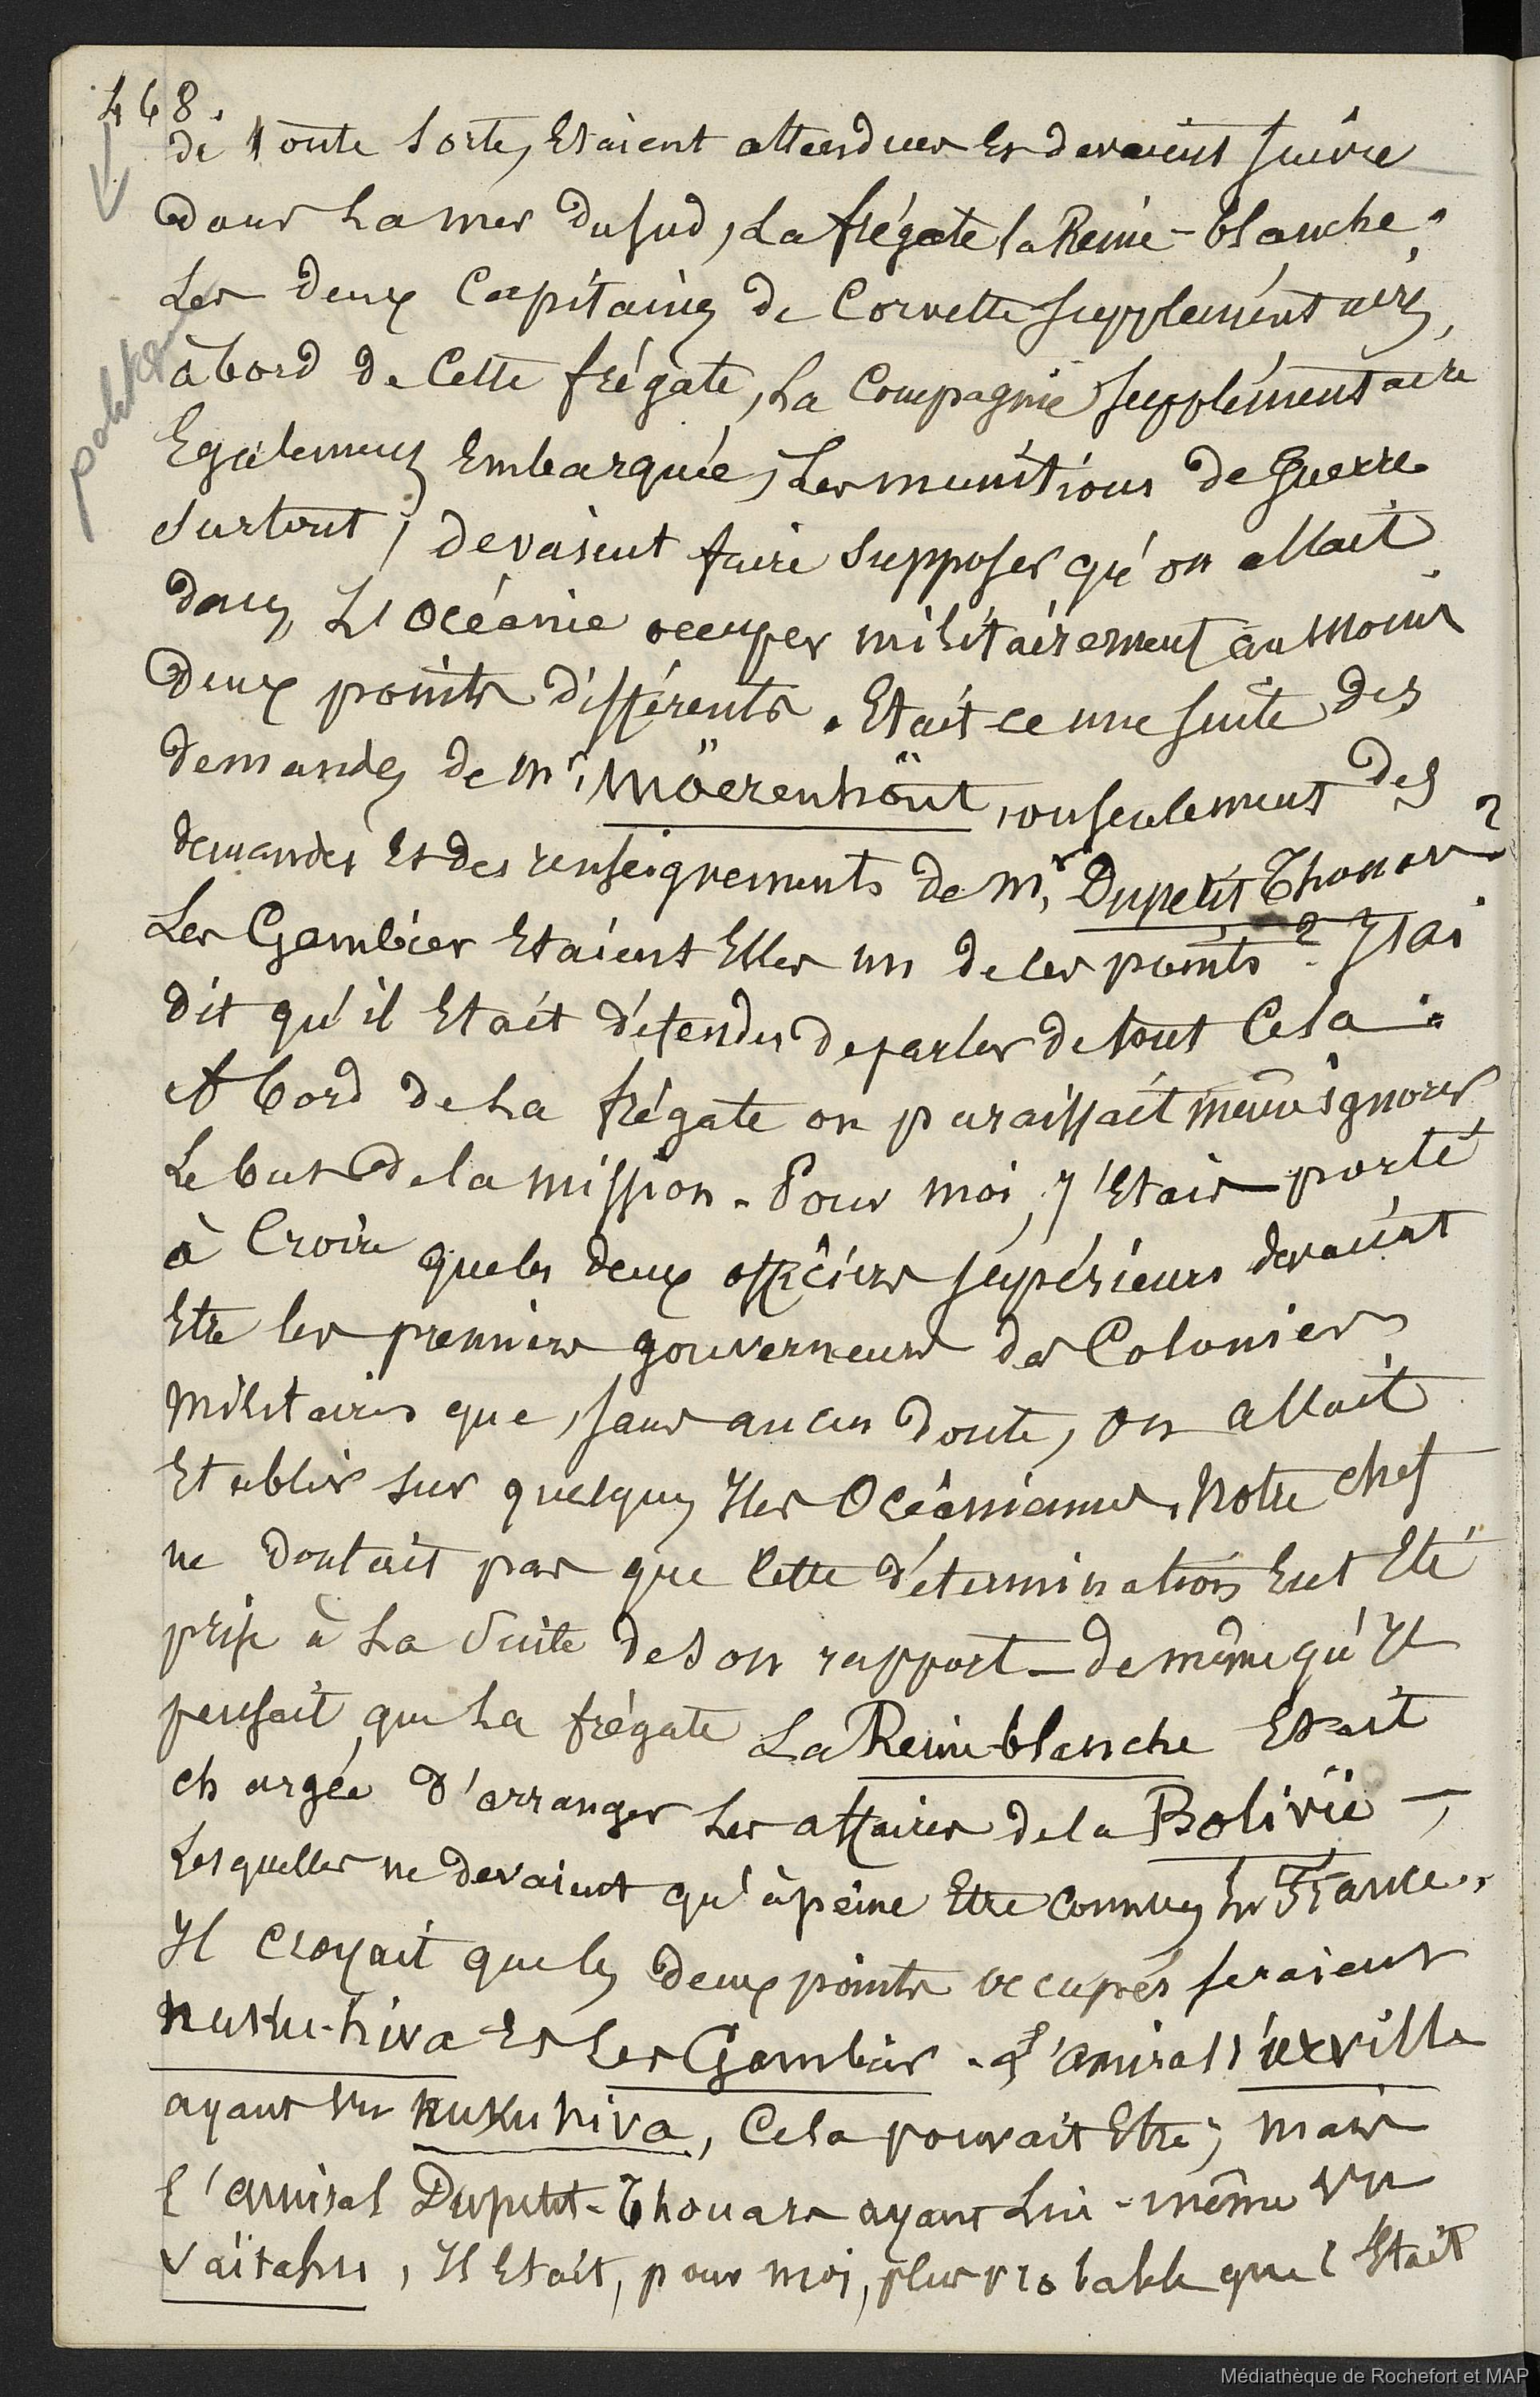 468.
de toute sorte, Etaient attendues Et devaient suivre
dans La mer du sud, La frégate la Reine-blanche.
Les deux Capitaines de Corvette supplémentaires,
à bord de Cette frégate, La Compagnie supplémentaire
Egalement Embarquée, Les munitions de guerre
surtout, devaient faire supposer qu'on allait
dans L'Océanie occuper militairement au moins
deux points différents. Etait ce une suite des
demandes de Mr. Möerenhöut, ou seulement des
demandes Et des renseignements de Mr. Dupetit Thouars ?
Les Gambier Etaient Elles un de ces points ? J'ai
dit qu'il Etait défendu de parler de tout Cela.
A bord de La frégate on paraissait même ignorer
Le but de la mission. Pour moi, j'Etais porté
à Croire que les deux officiers supérieurs devaient
Etre les premiers gouverneurs des Colonies
militaires que, sans aucun doute, on allait
Etablir sur quelques Iles Océaniennes. Notre chef
ne doutait pas que Cette détermination Eut Eté
prise à La suite de son rapport - de même qu'Il
pensait que La frégate La Reine-blanche Etait
chargée d'arranger Les affaires de la Bolivie -,
Lesquelles ne devaient qu'à peine Etre connues En France.
Il Croyait que les deux points occupés seraient
Nuku-hiva Et Les Gambier. L'amiral d'urville
ayant vu Nukuhiva, Cela pouvait Etre ; mais
l'amiral Dupetit-Thouars ayant Lui-même vu
Vaïtahu, Il Etait, pour moi, plus probable que C'Etait
Médiathèque de Rochefort et MAP